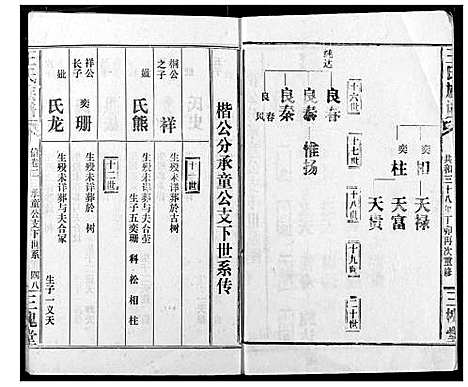 王氏族譜
共和三十八年丁卯再次重修
三槐堂
奕和
天禄
奕柱
天富
天贵
十六世
十七世
十八世
十九世
二十世
纯达
良春
良泰
惟扬
良秦
良
风春
楷公分承童公支下世系传
十一世
桐公之子
祥
生殁未详葬於古树
妣
氏熊
生殁未详葬与夫合茔
生子五奕珊 科 松 相 柱
十二世
祥公长子
奕珊
生殁未详葬於 树
妣
氏龙
生殁未详葬与夫合冢
生子一义天
信卷二
承童公支下世系
四八
三槐堂